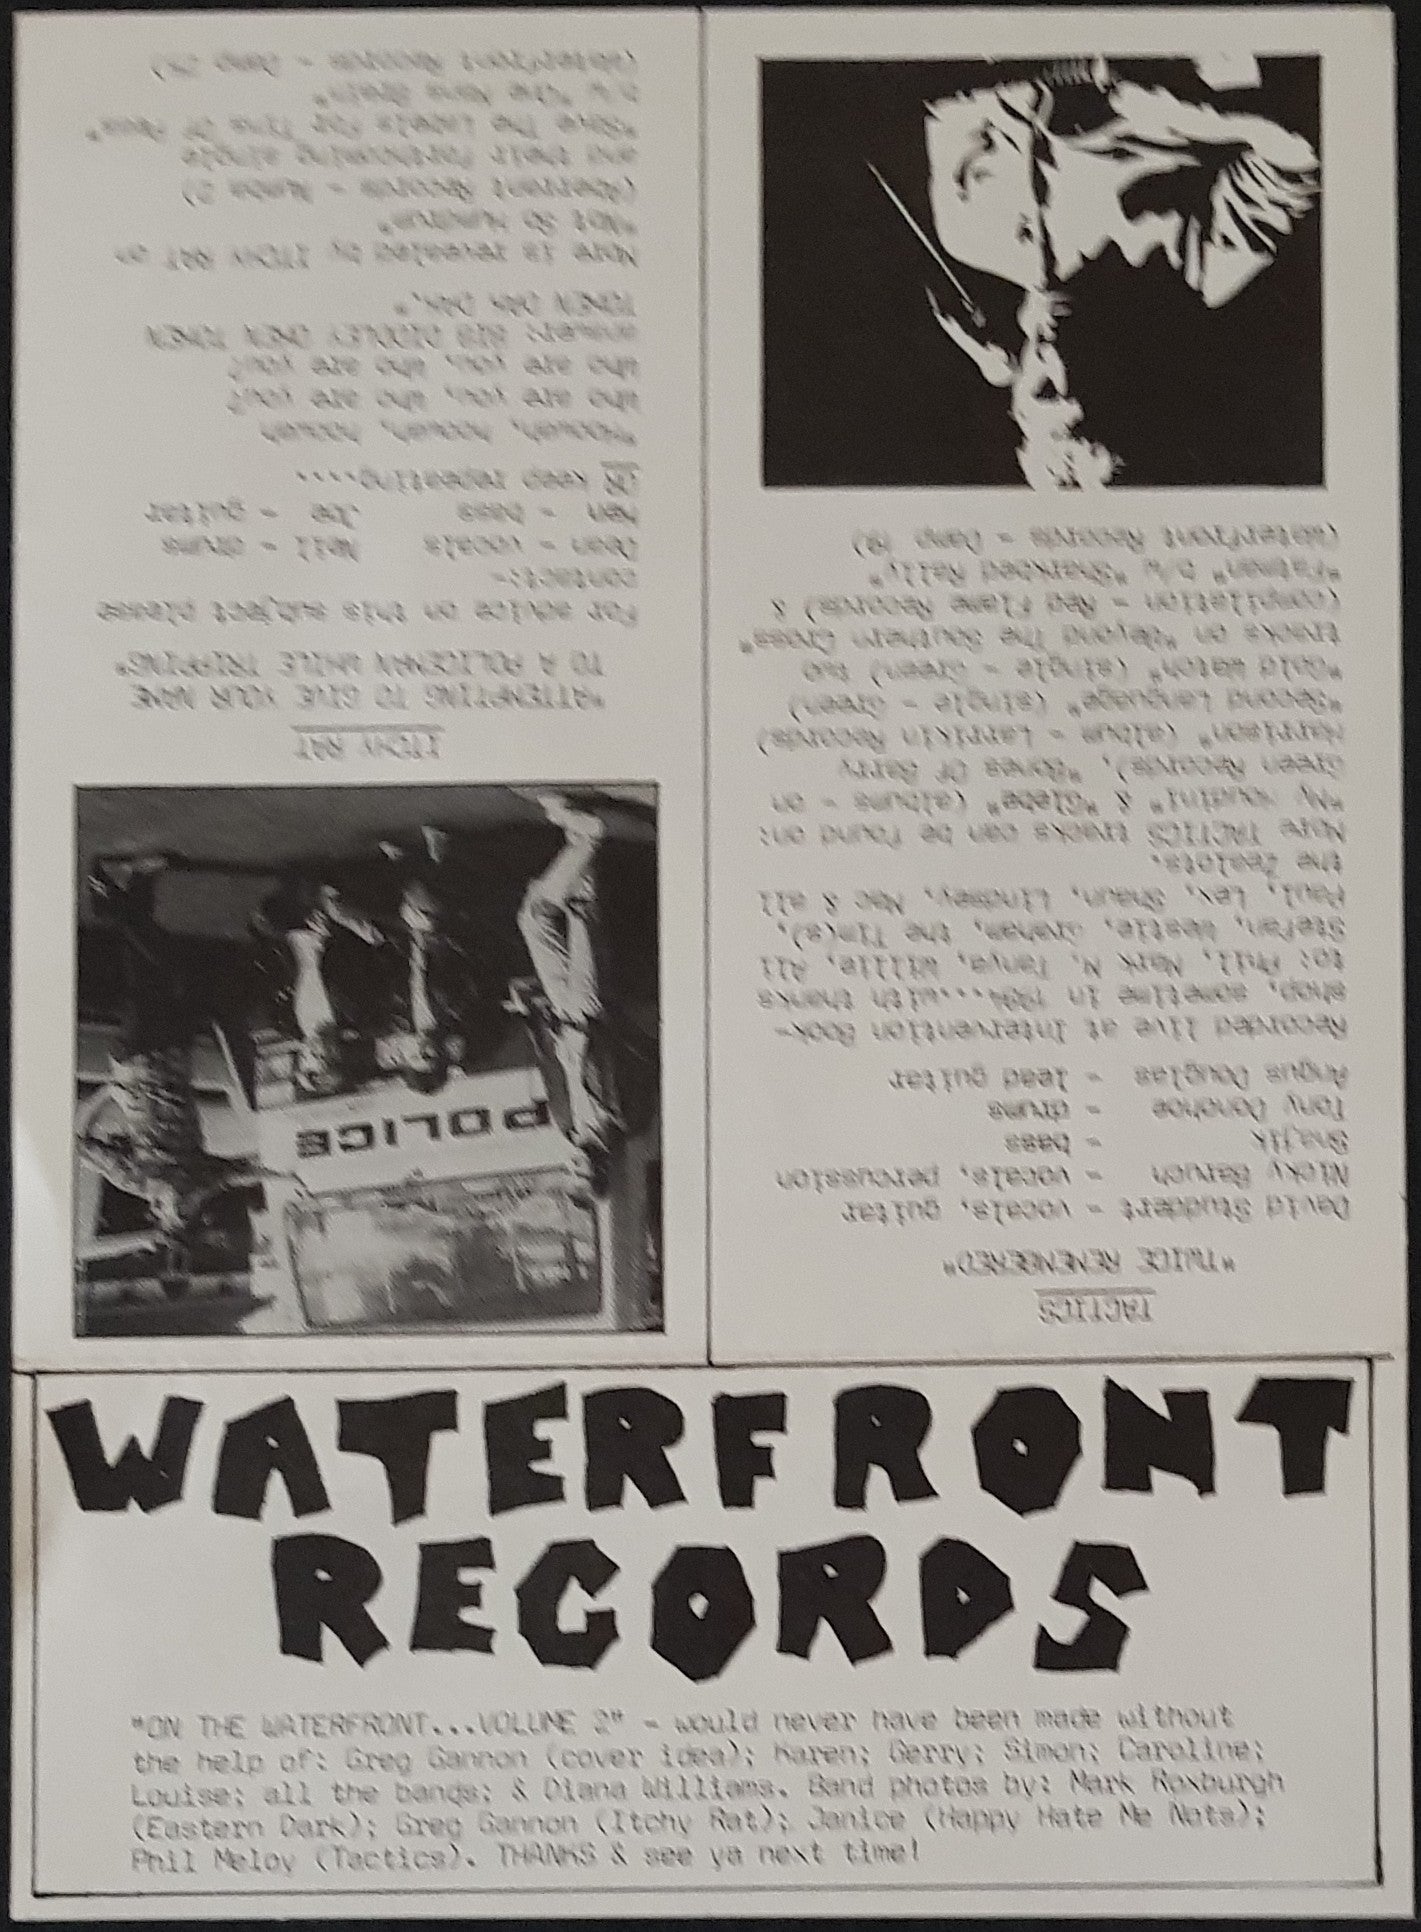 TACTICS
"TWICE REMEMBERED"
David Studdert - vocals, guitar
Nicky Baruch - vocals, percussion
Snajik - bass
Tony Donohoe - drums
Angus Douglas - lead guitar
Recorded live at Intervention Book-
shop, sometime in 1984...with thanks
to: Phil, Mark N, Tanya, Willie, All
Stefan, Westie, Graham, the Tim(s),
Paul, Lex, Shaun, Lindsey, Mac & all
the Zealots.
More TACTICS tracks can be found on:
"My Houdini" & "Glebe" (albums - on
Green Records), "Bones Of Barry
Harrison" (album - Larrikin Records)
"Second Language" (single - Green)
(single - Green) two
tracks on "Beyond The Southern Cross"
(compilation - Red Flame Records) &
"Fatman" b/w "Sharkbed Rally"
(Waterfront Records - Damp
POLICE
ITCHY RAT
"ATTEMPTING TO GIVE YOUR NAME
TO A POLICEMAN WHILE TRIPPING"
For advice on this subject please
contact:-
Dean - vocals Neil - drums
Ken - bass Joe - guitar
OR keep repeating....
"Hoowah, hoowah, hoowah
who are you, who are you?
who are you, who are you?
answer: BIB DIDDLEY OHEN TOHEN
TOHEN DAH DAH."
More is revealed by ITCHY RAT on
"Not So Humdrum"
(Aberrant Records - Numba 2)
and their forthcoming single
"Save The Labels For Tins Of Peas"
b/w "The
(Waterfront Records - Damp
WATERFRONT
RECORDS
"ON THE WATERFRONT...VOLUME 2" - would never have been made without
the help of: Greg Gannon (cover idea); Karen; Gerry; Simon; Caroline;
Louise; all the bands; & Diana Williams. Band photos by: Mark Roxburgh
(Eastern Dark); Greg Gannon (Itchy Rat); Janice (Happy Hate Me Nots);
Phil Meloy (Tactics). THANKS & see ya next time!